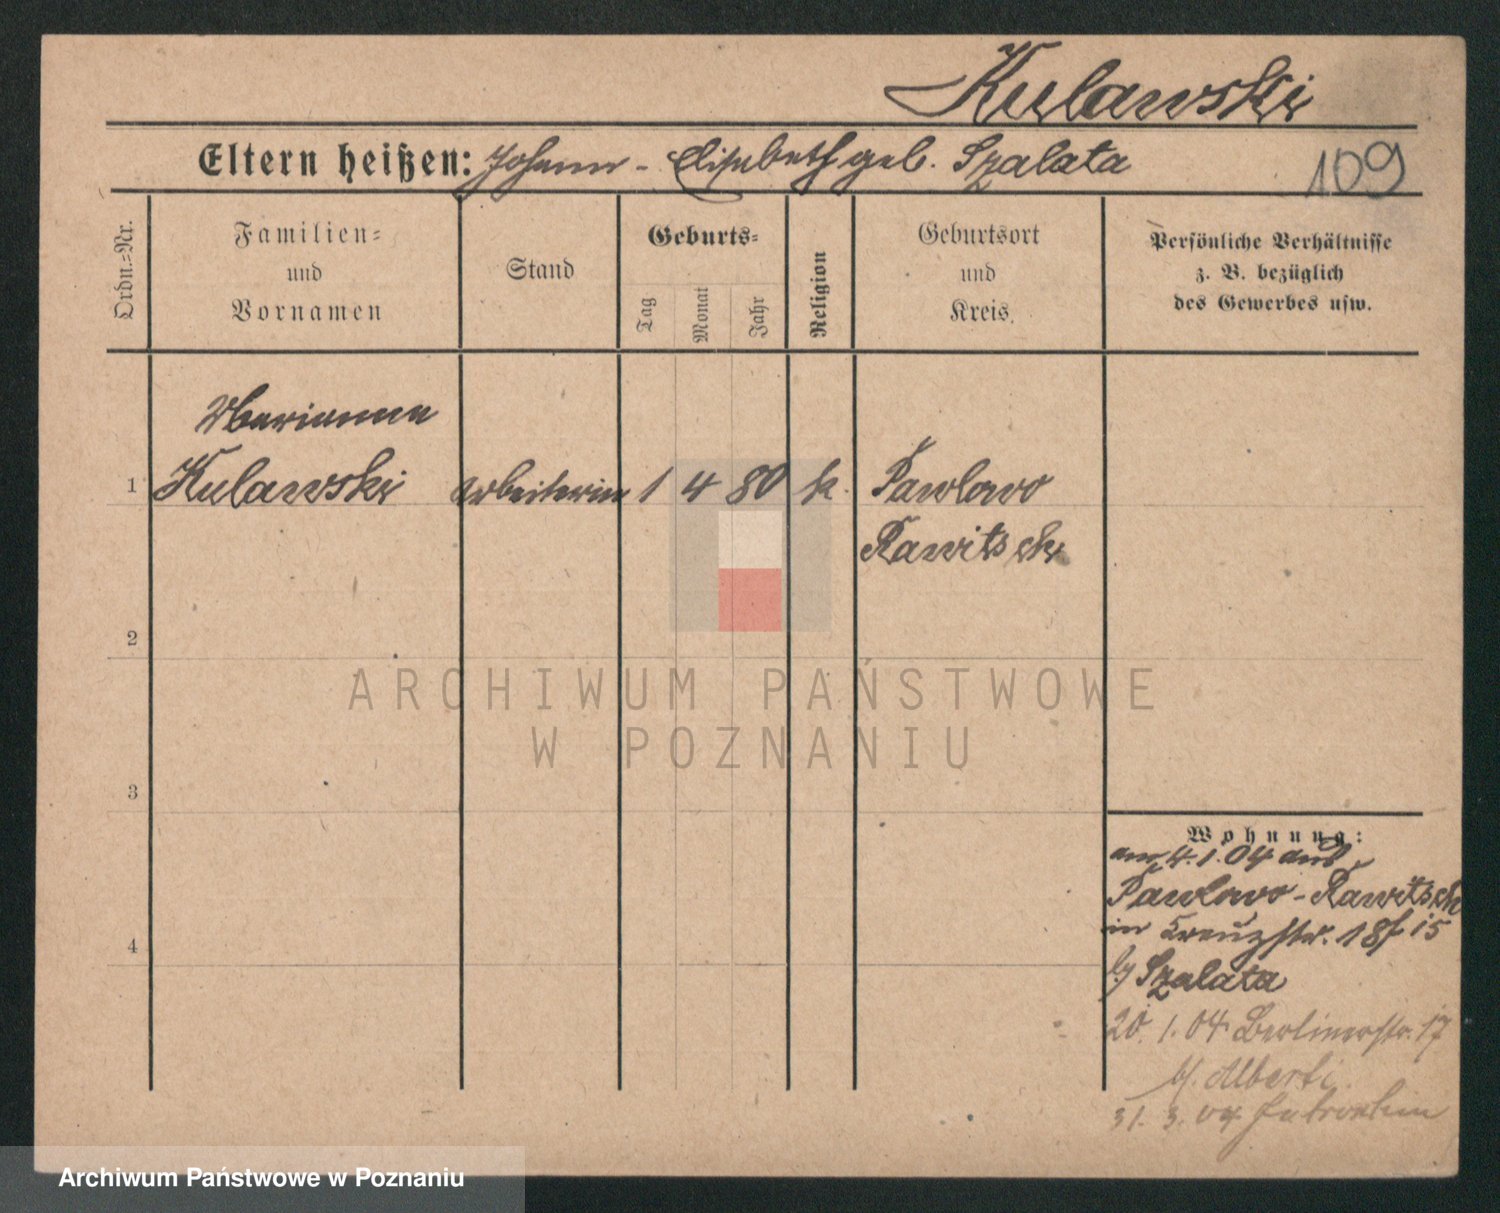 Kulawski
Eltern heißen: Johann - Elisabeth geb. Szalata
109
Ordn.=Nr.
Familien=
und
Vornamen
Stand
Geburts=
Tag
Monat
Jahr
Religion
Geburtsort
und
Kreis.
Persönliche Verhältnisse
z. B. bezüglich
des Gewerbes usw.
Marianna
1 Kulawski Arbeiterin 1 4 80 k. Pawlowo
Rawitsch
2
3
4
Wohnung:
am 4.1.04 aus
Pawlowo - Rawitsch
in Kreuzstr. 18
b/ Szalata
20.1.04 Berlinerstr. 17
b/. Alberti.
31.3.04
ARCHIWUM PAŃSTWOWE
W POZNANIU
Archiwum Państwowe w Poznaniu